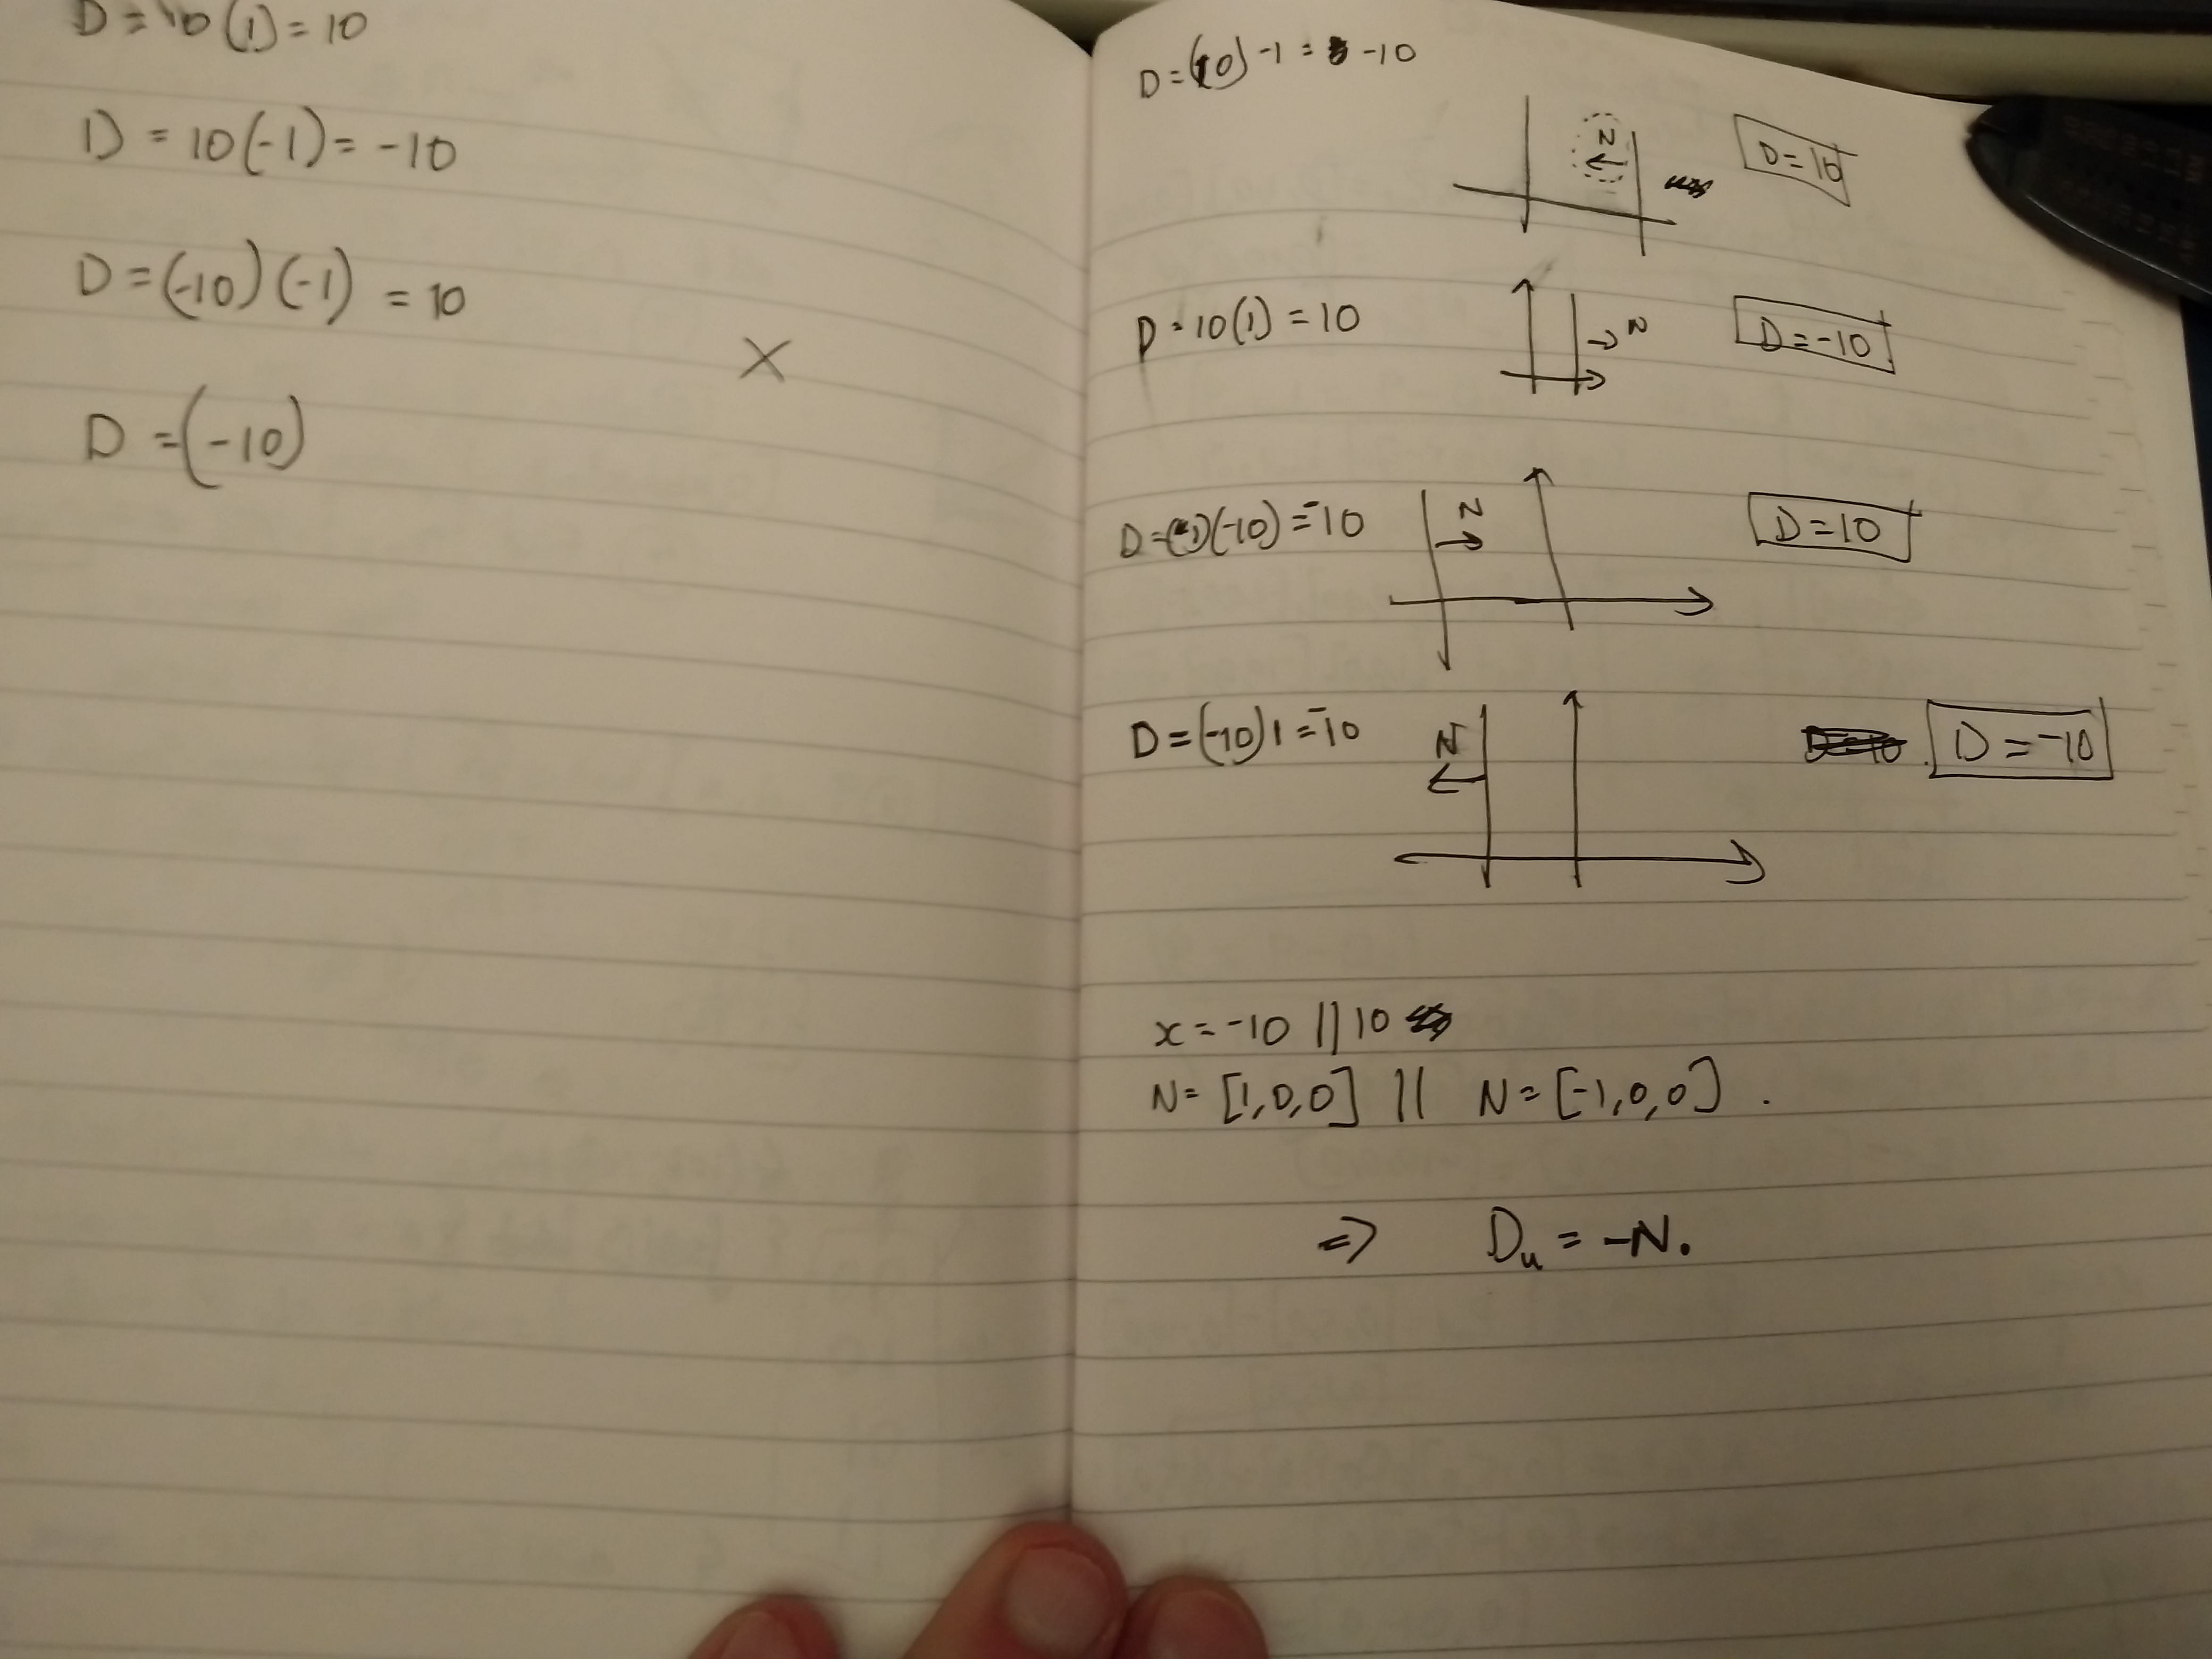 D = 10 (1) = 10
D = 10(-1) = -10
D = (-10) (-1) = 10
X
D = (-10)
D = (10) -1 = -10
N
D = 10
D = 10(1) = 10
N
D = -10
(-10) = -10
N
D = 10
D = (-10) 1 = -10
N
D = -10
x = -10 || 10
N = [1,0,0] || N = [-1,0,0] .
⇒ Du = -N.